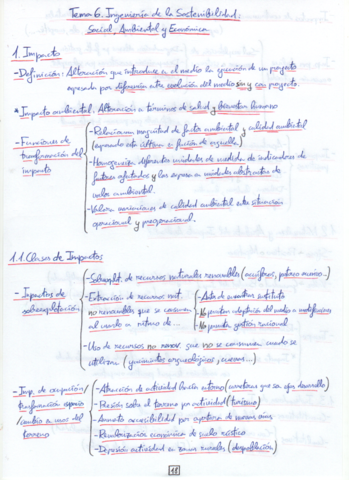 Tema 6. Ingeniería de la Sostenibilidad:
Social, Ambiental y Económica
1. Impacto
- Definición: Alteración que introduce en el medio la ejecución de un proyecto
expresada por diferencia entre evolución del medio sin y con proyecto.
* Impacto ambiental: Alteración a términos de salud y bienestar humano
- Funciones de
transformación del
impacto
- Relacionan magnitud de factor ambiental y calidad ambiental
(expresando esta última en función de aquella)
- Homogeneizan diferentes unidades de medida de indicadores de
factores afectados y las expresa en unidades abstractas de
valor ambiental.
- Valoran variaciones de calidad ambiental entre situación
operacional y preoperacional.
1.1 Clases de Impactos
- Impactos de
sobreexplotación
- Sobreexplot. de recursos naturales renovables (acuíferos, pastos
- Extracción de recursos nat.
no renovables que se consumen
al usarlo a ritmo de...
- Acta de nuestros
- No puedan adaptación del medio a modificaciones
- No pueda gestión racional
- Uso de recursos no renov. que no se consumen cuando se
utilizan (yacimientos arqueológicos, cuevas...)
- Imp. de ocupación/
transformación espacio/
cambio en usos del
terreno
- Atracción de actividad hacia entorno (carreteras que dan desarrollo)
- Presión sobre el terreno por actividad (turismo)
- Aumento accesibilidad por apertura de nuevas vías
- Revalorización económica de suelo rústico
- Depresión actividad en zonas rurales (despoblación)